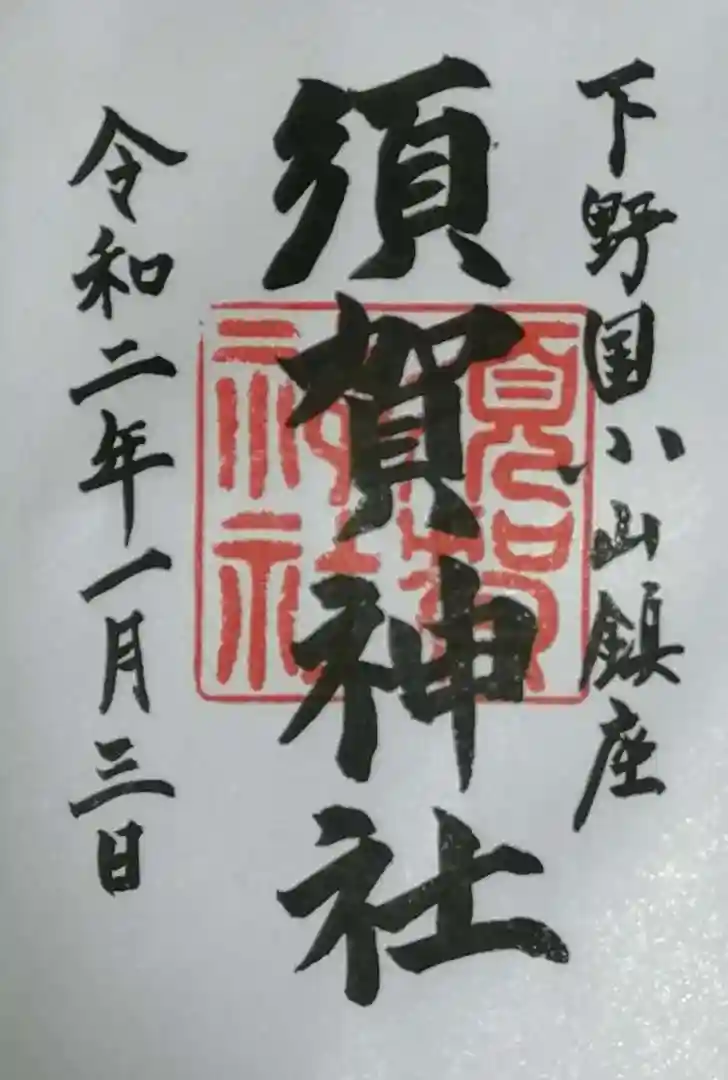 下野国小山鎮座
須賀神社
須賀神社
令和二年一月三日